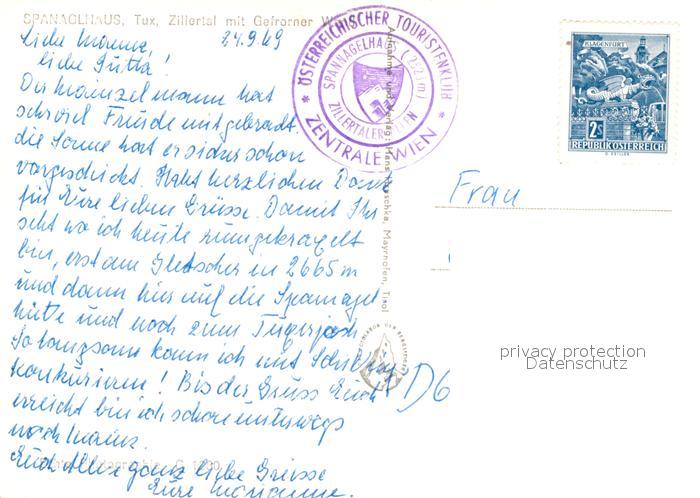 SPANAGLHAUS, Tux, Zillertal mit Gefrorner W
24.9.69
Liebe Mama,
liebe Jutta!
Der Mainzelmann hat
sehr viel Freude mitgebracht.
die Sonne hat er sicher schon
vorgeschickt. Habt herzlichen Dank
für Eure lieben Grüsse. Damit Ihr
seht wo ich heute rumgekragelt
bin, erst am Gletscher in 2665 m
und dann hier auf die Spannagel
hütte und noch zum Tuxerjoch
So langsam kann ich mit Schilling
konkurieren! Bis der Gruss Euch
erreicht bin ich schon unterwegs
nach Mainz.
Euch Allen ganz liebe Grüsse
Eure Marianne.
ÖSTERREICHISCHER TOURISTENKLUB
ZENTRALE WIEN
SPANNAGELHAUS
ZILLERTALER ALPEN
Aufnahme und Verlag: Hans Hruschka, Mayrhofen, Tirol
KLAGENFURT
2S
REPUBLIK ÖSTERREICH
Frau
D 6
privacy protection
Datenschutz